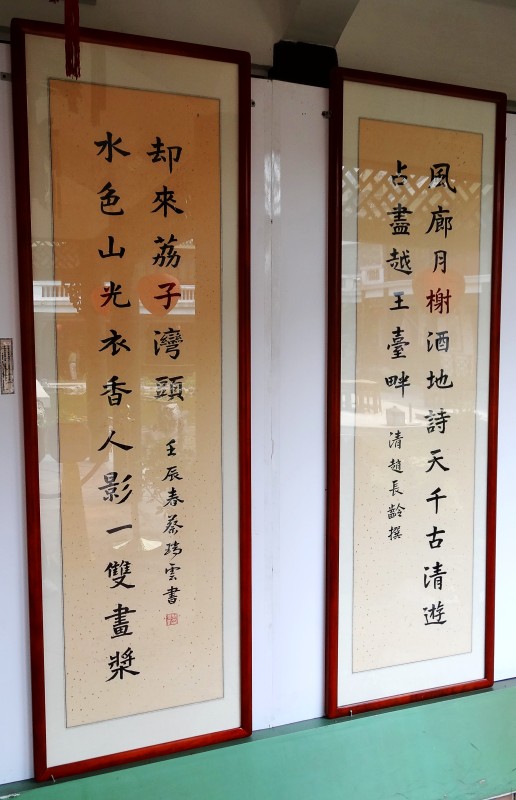 風廊月榭酒地詩天千古清遊
占盡越王臺畔
清趙長齡撰
水色山光衣香人影一雙畫槳
却來荔子灣頭
壬辰春蔡瑞雲書